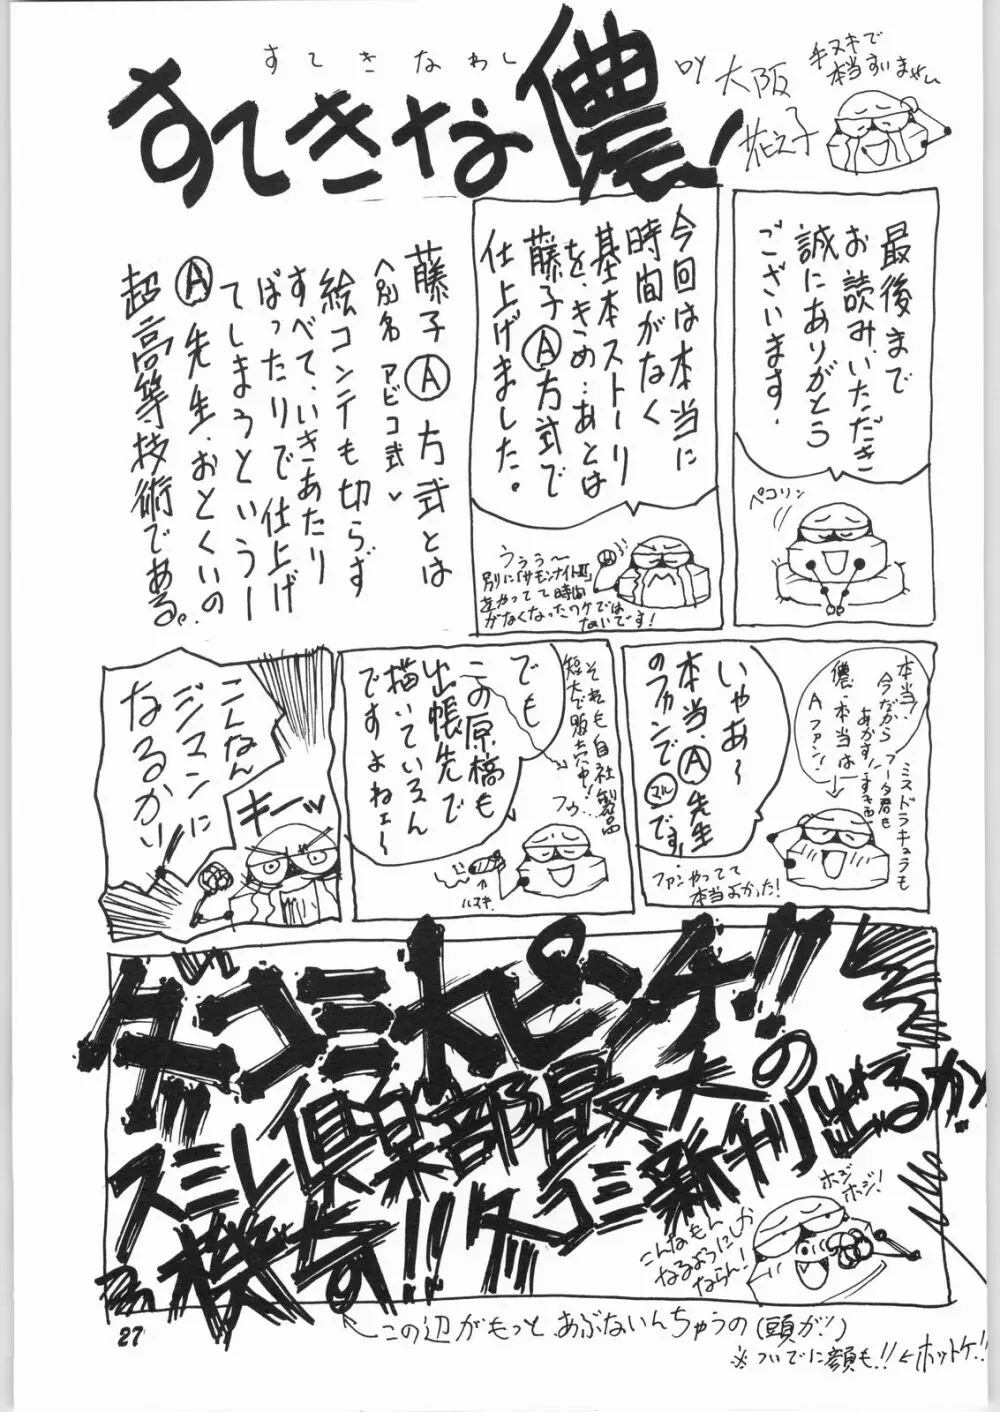 すてきなわし
すてきな儂！
by 大阪
花之子
手ヌキで
本当すいません
最後まで
お読みいただき
誠にありがとう
ございます.
ペコリン
今回は本当に
時間がなく
基本ストーリー
を、きめ…あとは
藤子Ⓐ方式で
仕上げました。
うぅぅ〜
別に「サモンナイトⅢ」
をやってて時間
がなくなったワケでは
ないです！
藤子Ⓐ方式とは
〈別名 アビコ式〉
絵コンテも切らず
すべて、いきあたり
ばったりで仕上げ
てしまうというー
Ⓐ先生.おとくいの
超高等技術である。
本当、
今だから
あかす！
儂、本当は
Aファン！
ミスドラキュラも
フータ君も
いやあ〜
本当.Ⓐ先生
のファンでマルです
ファンやってて
本当よかった！
でも
この原稿も
出張先で
描いているん
ですよねェ〜
それも自社製品
短大で販売中！
フゥ…
こんなん
ジマンに
なるかい
キーッ
ダーコミ大ピンチ!!
スミレ倶楽部最大の
機奇!!
コミ新刊出るか
ホジ
ホジ！
こんなもん
なるようにしか
ならん！
この辺がもっと、あぶないんちゃうの(頭が!)
※ついでに顔も!!←ホットケ!!
27